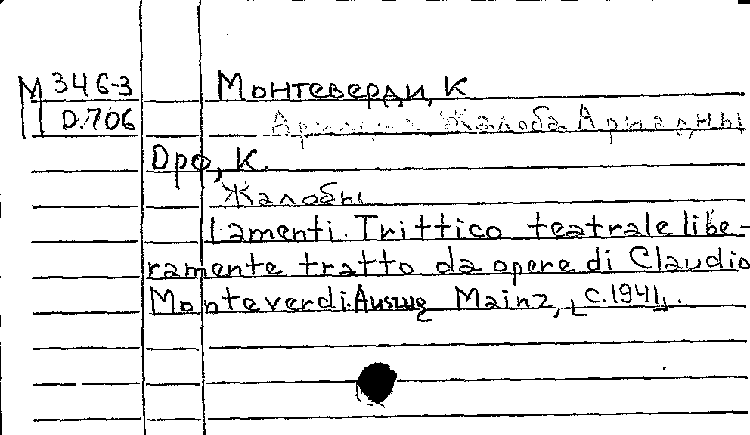 М 346-3 Монтеверди, К
D.706 Жалоба Ариадны
Орф, К.
Жалобы
Lamenti. Trittico teatrale libe-
ramente tratto da opere di Claudio
Monteverdi. Auszug Mainz, [c.1941].